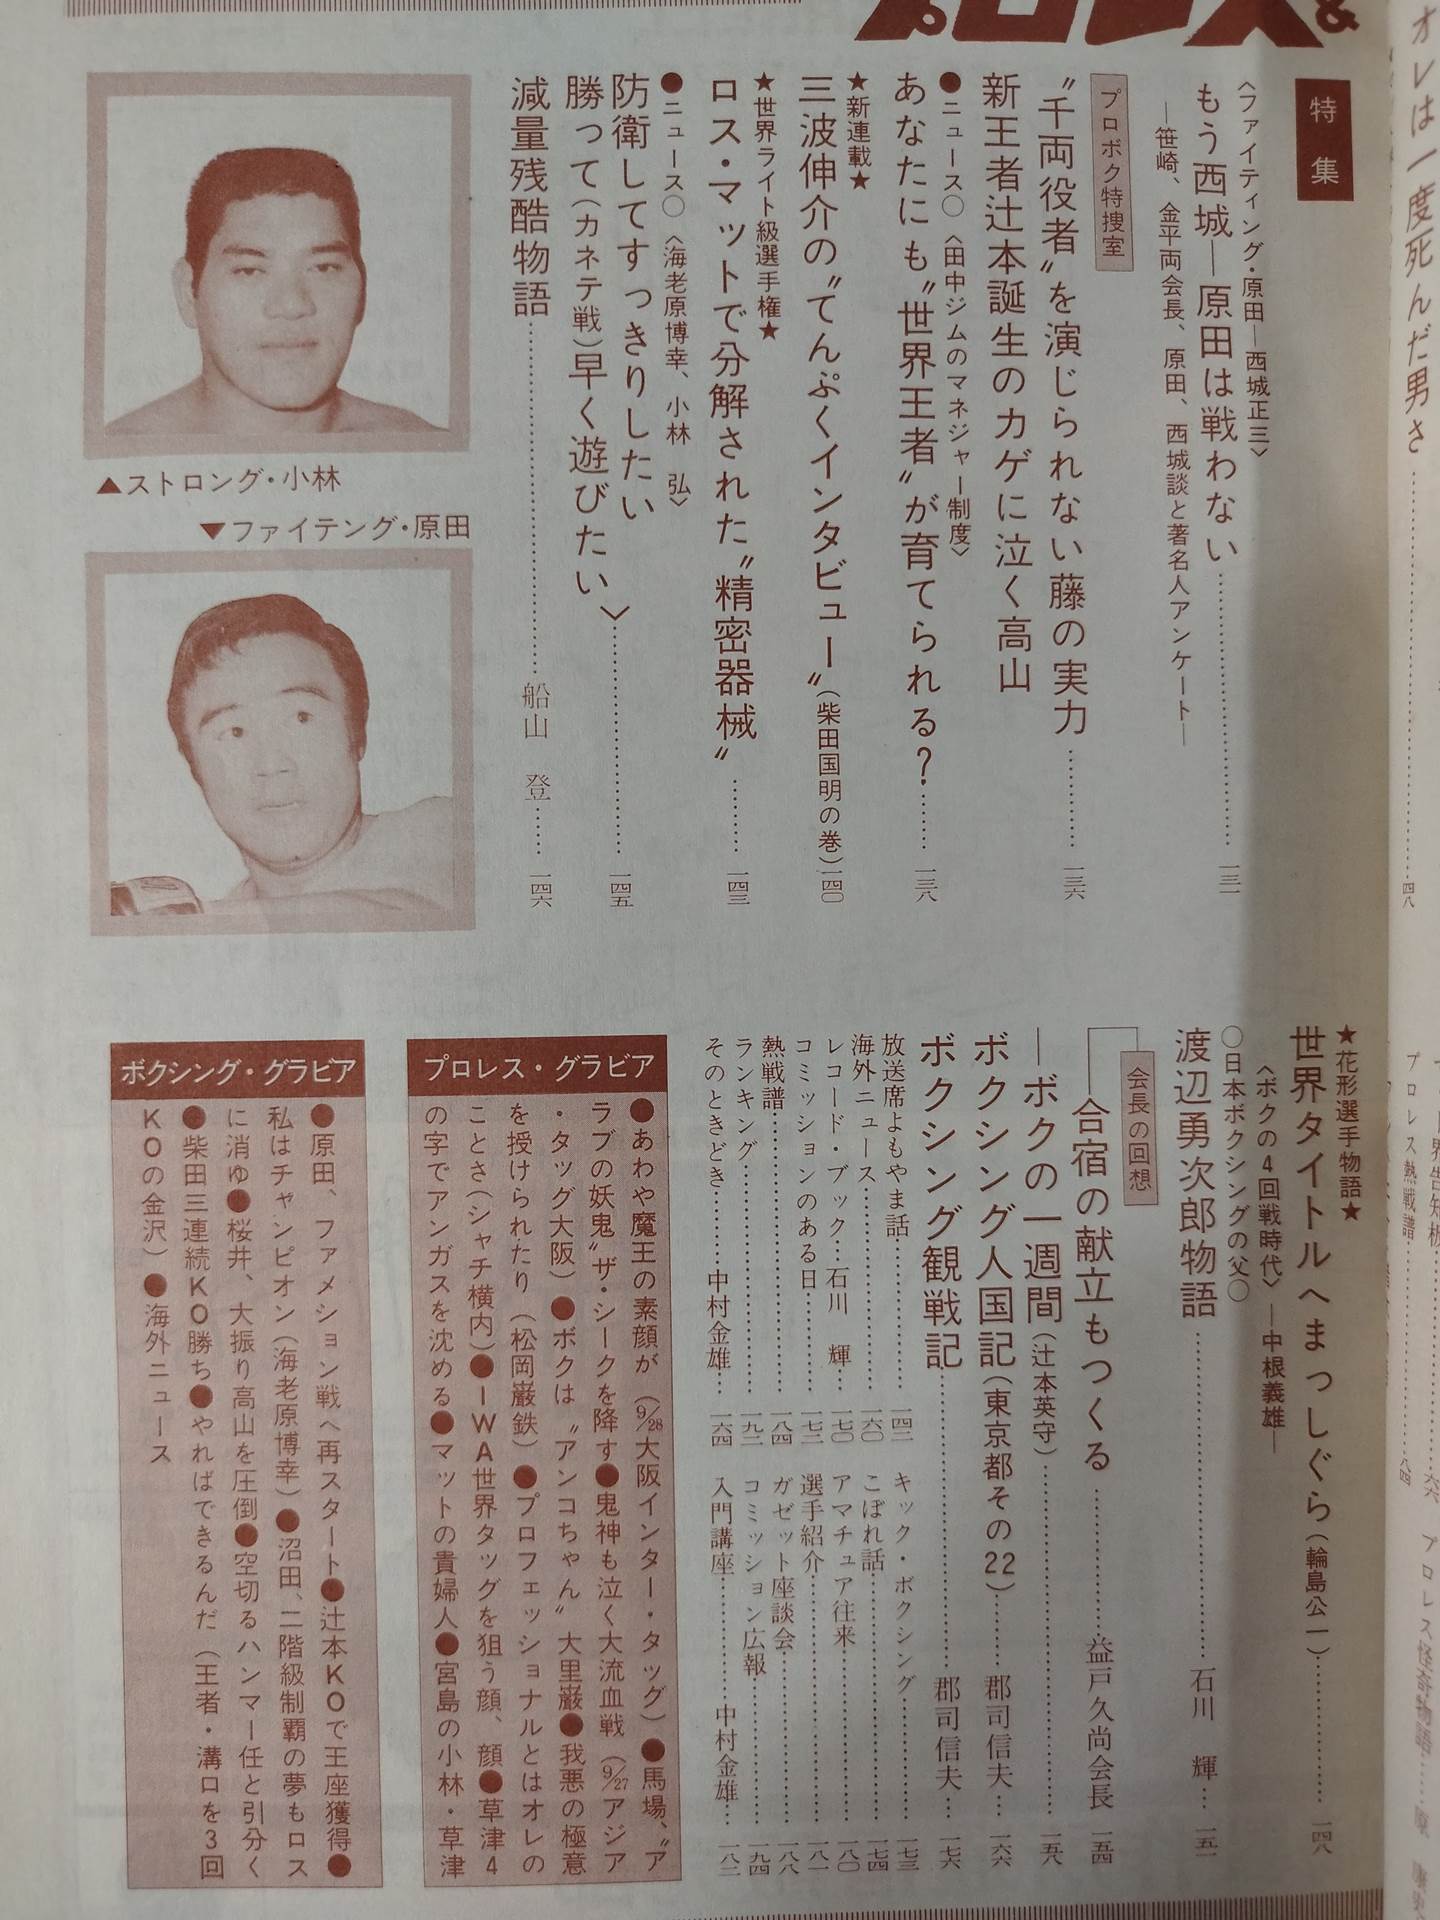 プロレス&
特集
〈ファイティング・原田―西城正三〉
もう西城―原田は戦わない……一三一
―笹崎、金平両会長、原田、西城談と著名人アンケート―
プロボク特捜室
〝千両役者〟を演じられない藤の実力……一三六
新王者辻本誕生のカゲに泣く高山
●ニュース○〈田中ジムのマネジャー制度〉
あなたにも〝世界王者〟が育てられる?……一三八
★新連載★
三波伸介の〝てんぷくインタビュー〟(柴田国明の巻)一四〇
★世界ライト級選手権★
ロス・マットで分解された〝精密器械〟……一四三
●ニュース○〈海老原博幸、小林 弘〉
防衛してすっきりしたい
勝って(カネテ戦)早く遊びたい〉……一四五
減量残酷物語……船山 登……一四六
▲ストロング・小林
▼ファイテング・原田
★花形選手物語★
世界タイトルへまっしぐら(輪島公一)……一四八
〈ボクの4回戦時代〉―中根義雄―
○日本ボクシングの父○
渡辺勇次郎物語……石川 輝……一五一
会長の回想
合宿の献立もつくる……益戸久尚会長 一五四
―ボクの一週間(辻本英守)……一五八
ボクシング人国記(東京都その22)……郡司信夫……一六六
ボクシング観戦記……郡司信夫……一七六
放送席よもやま話……一四二
海外ニュース……一六〇
レコード・ブック……石川 輝……一七〇
コミッションのある日……一七二
熱戦譜……一八四
ランキング……一九二
そのときどき……中村金雄……一六四
キック・ボクシング……一七三
こぼれ話……一七四
アマチュア往来……一八〇
選手紹介……一八一
ガゼット座談会……一八八
コミッション広報……一九四
入門講座……中村金雄……一八二
プロレス・グラビア
●あわや魔王の素顔が(9/28大阪インター・タッグ)●馬場、〝ア
ラブの妖鬼〟ザ・シークを降す●鬼神も泣く大流血戦(9/27アジア
・タッグ大阪)●ボクは〝アンコちゃん〟大里巌●我悪の極意
を授けられたり(松岡巌鉄)●プロフェッショナルとはオレの
ことさ(シャチ横内)●IWA世界タッグを狙う顔、顔●草津4
の字でアンガスを沈める●マットの貴婦人●宮島の小林・草津
ボクシング・グラビア
●原田、ファメション戦へ再スタート●辻本KOで王座獲得●
私はチャンピオン(海老原博幸)●沼田、二階級制覇の夢もロス
に消ゆ●桜井、大振り高山を圧倒●空切るハンマー任と引分く
●柴田三連続KO勝ち●やればできるんだ(王者・溝口を3回
KOの金沢)●海外ニュース
オレは一度死んだ男さ……四八
プロレス熱戦譜……八四
プロレス怪奇物語